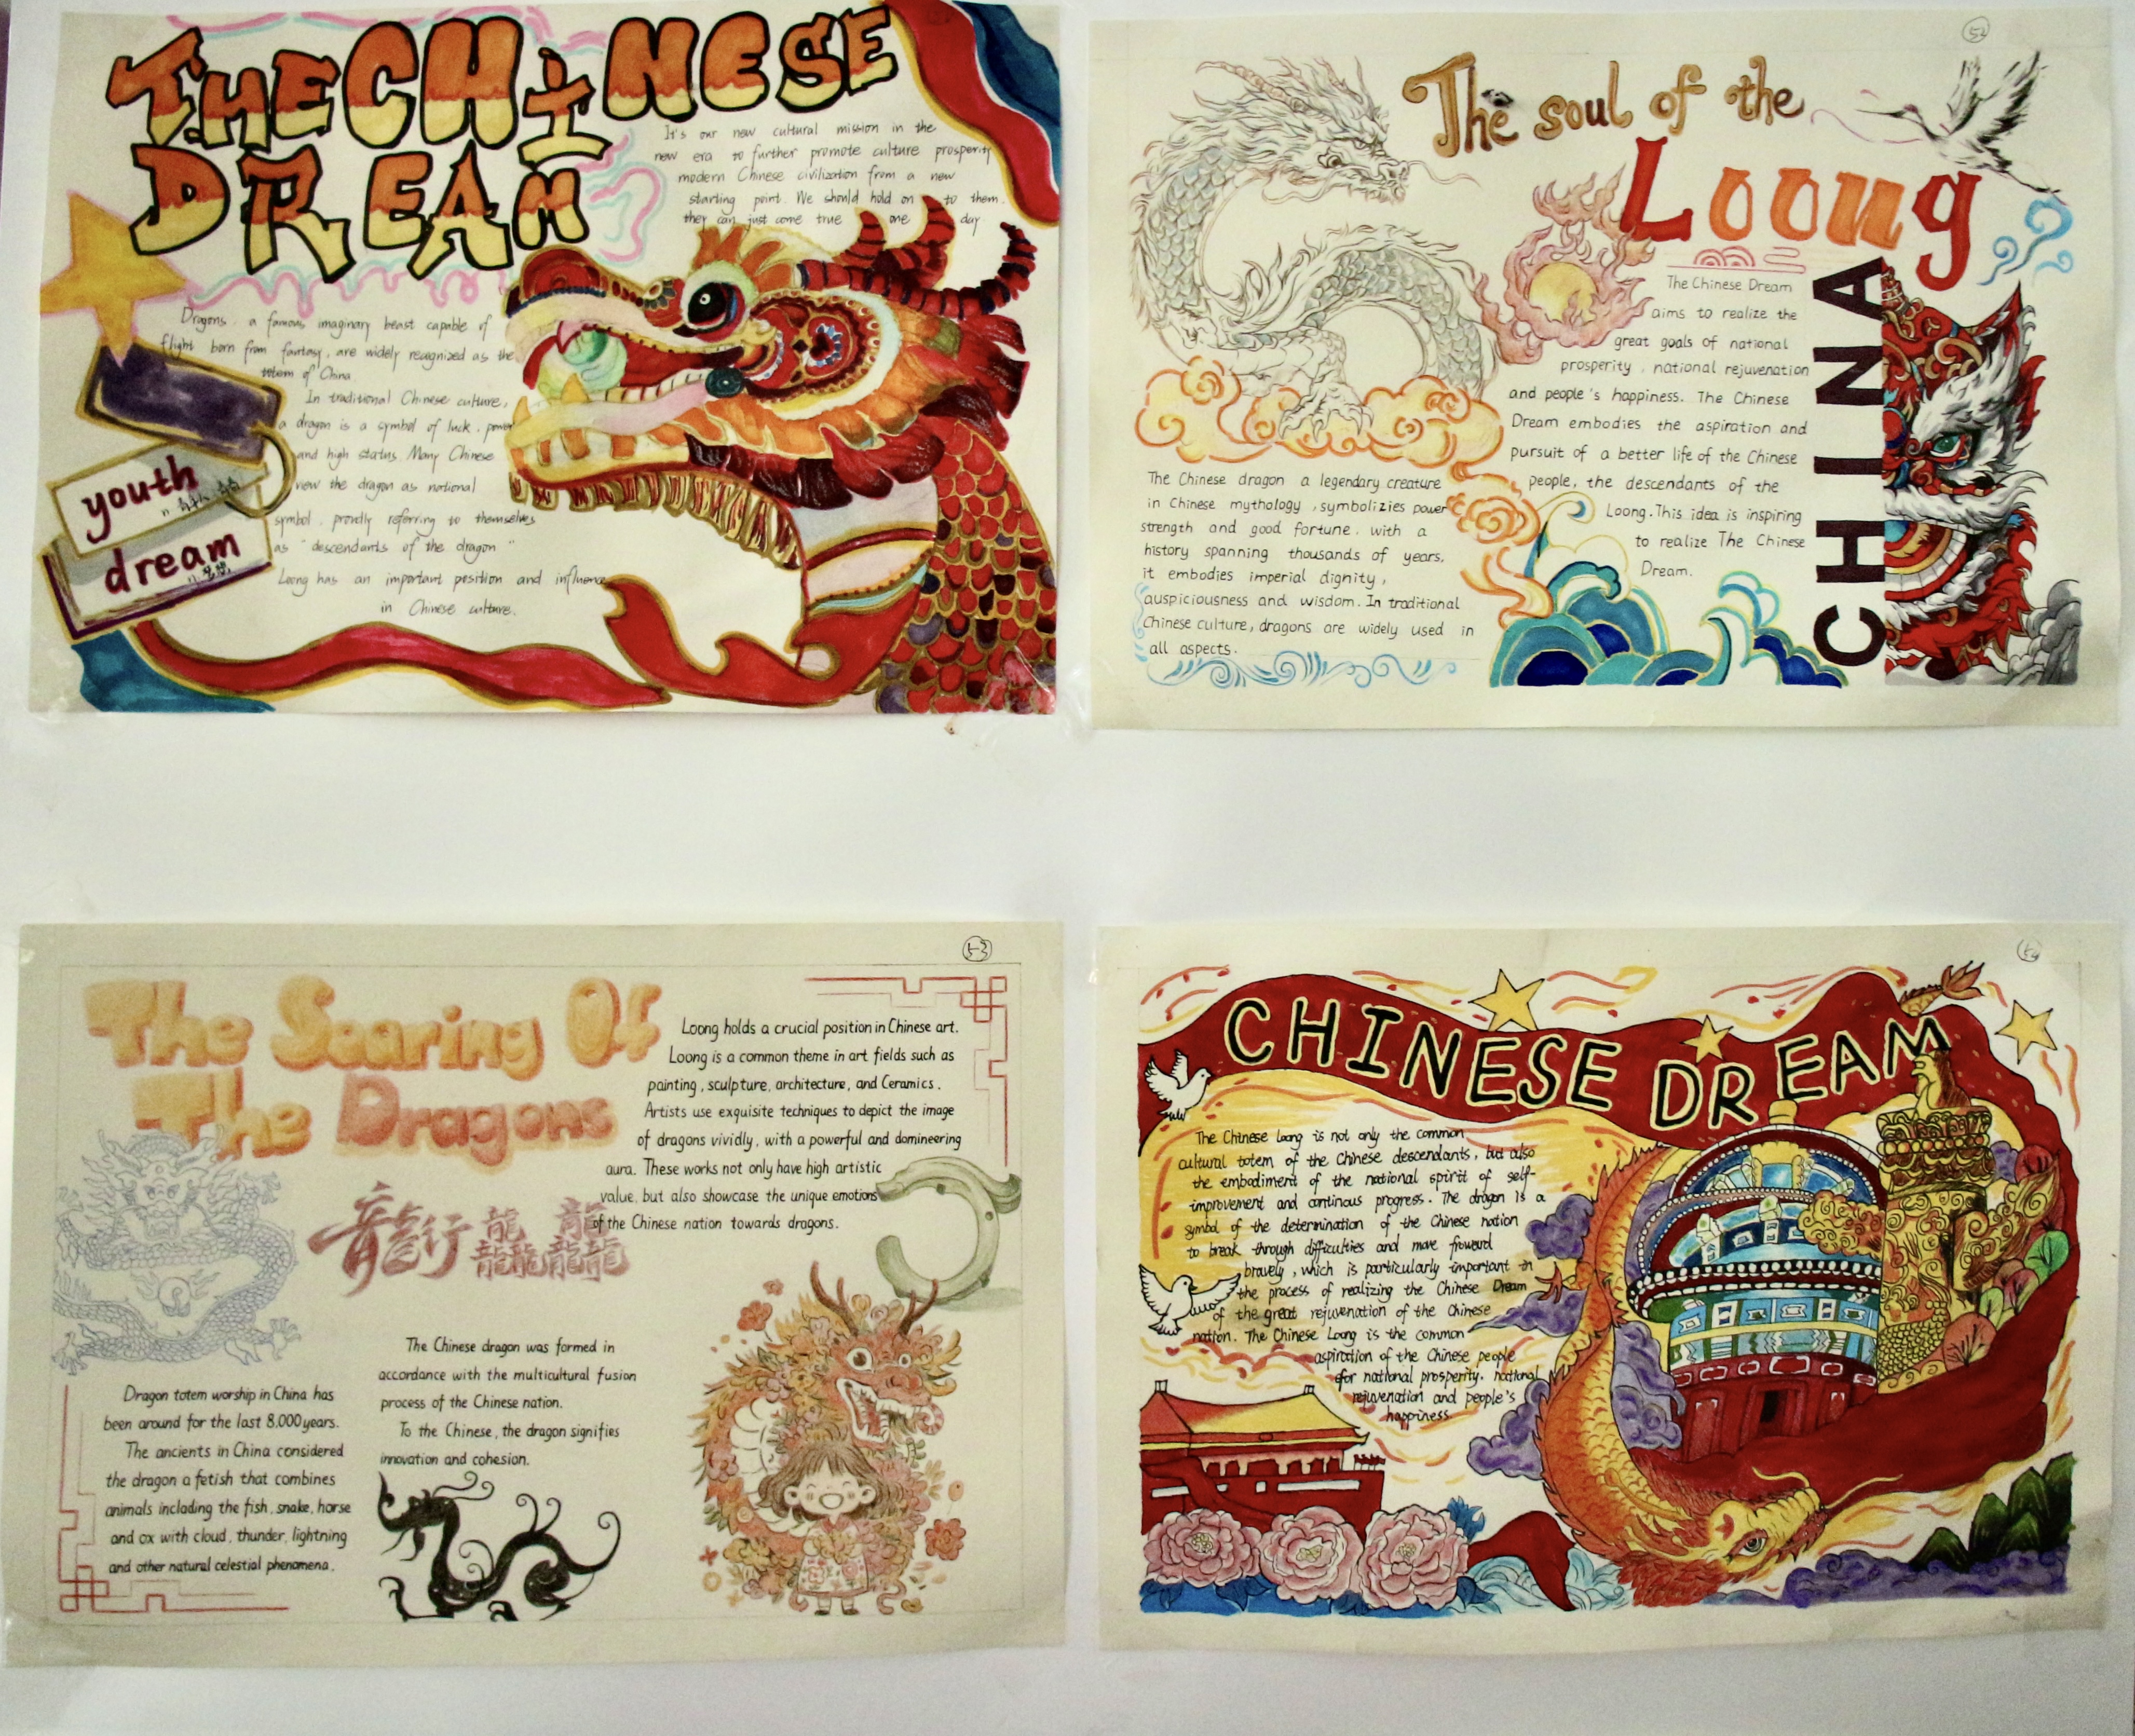 THE CHINESE
DREAM
It's our new cultural mission in the
new era to further promote culture prosperity
modern Chinese civilization from a new
starting point. We should hold on to them.
they can just come true one day
Dragons, a famous imaginary beast capable of
flight born from fantasy, are widely recognized as the
totem of China.
In traditional Chinese culture,
a dragon is a symbol of luck, power
and high status. Many Chinese
view the dragon as national
symbol, proudly referring to themselves
as "descendants of the dragon"
Loong has an important position and influence
in Chinese culture.
youth
dream
52
The soul of the
Loong
CHINA
The Chinese Dream
aims to realize the
great goals of national
prosperity, national rejuvenation
and people's happiness. The Chinese
Dream embodies the aspiration and
pursuit of a better life of the Chinese
people, the descendants of the
Loong. This idea is inspiring
to realize The Chinese
Dream.
The Chinese dragon a legendary creature
in Chinese mythology, symbolizies power
strength and good fortune. with a
history spanning thousands of years,
it embodies imperial dignity,
auspiciousness and wisdom. In traditional
Chinese culture, dragons are widely used in
all aspects.
5-3
The Soaring Of
The Dragons
Loong holds a crucial position in Chinese art.
Loong is a common theme in art fields such as
painting, sculpture, architecture, and Ceramics.
Artists use exquisite techniques to depict the image
of dragons vividly, with a powerful and domineering
aura. These works not only have high artistic
value, but also showcase the unique emotions
of the Chinese nation towards dragons.
龍行龘龘
The Chinese dragon was formed in
accordance with the multicultural fusion
process of the Chinese nation.
To the Chinese, the dragon signifies
innovation and cohesion.
Dragon totem worship in China has
been around for the last 8,000 years.
The ancients in China considered
the dragon a fetish that combines
animals including the fish, snake, horse
and ox with cloud, thunder, lightning
and other natural celestial phenomena.
CHINESE DREAM
The Chinese Loong is not only the common
cultural totem of the Chinese descendants, but also
the embodiment of the national spirit of self-
improvement and continous progress. The dragon is a
symbol of the determination of the Chinese nation
to break through difficulties and move froward
bravely, which is particularly important in
the process of realizing the Chinese Dream
of the great rejuvenation of the Chinese
nation. The Chinese Loong is the common
aspiration of the Chinese people
for national prosperity, national
rejuvenation and people's
happiness.